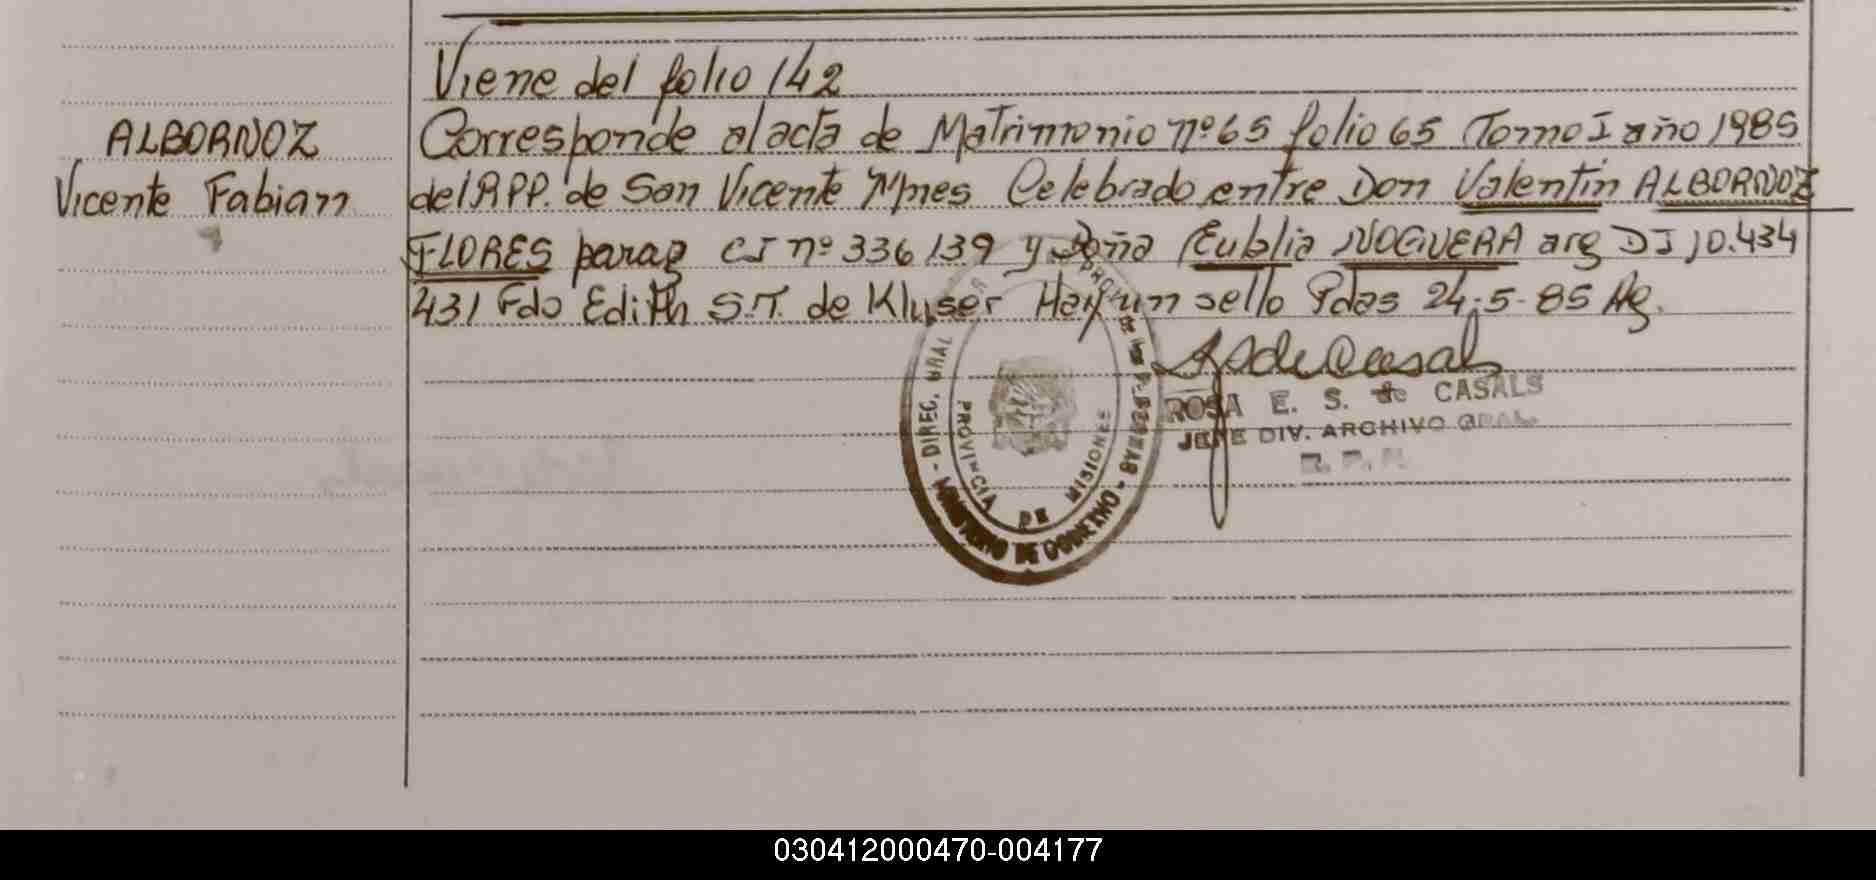 Viene del folio 142
ALBORNOZ
Vicente Fabian
Corresponde al acta de Matrimonio nº 65 folio 65 Tomo I año 1985
del RPP. de San Vicente Mnes Celebrado entre Don Valentin ALBORNOZ
FLORES parag CI nº 336139 y Doña Eublia NOGUERA arg DI 10.434
431 Fdo Edith S.T. de Klyser Hay un sello Pdas 24-5-85 Ag.
ROSA E. S. de CASALS
JEFE DIV. ARCHIVO GRAL.
R. P. P.
DIREC. GRAL
PROVINCIA DE MISIONES
MINISTERIO DE GOBIERNO
030412000470-004177